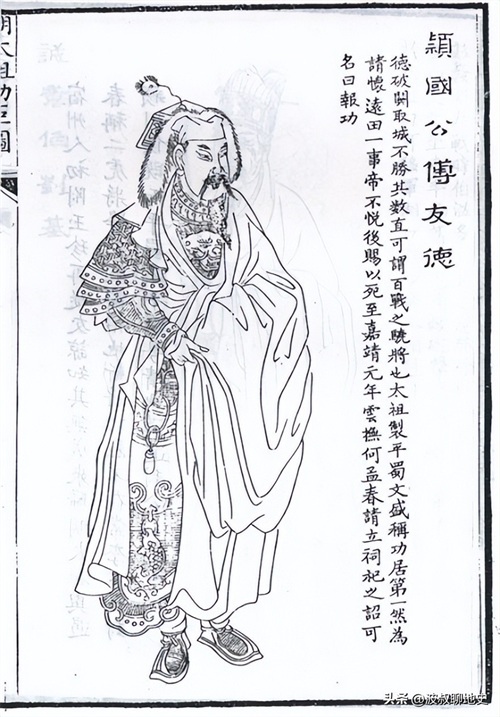 穎國公傅友德
德破關取城不勝共數直可謂百戰之驍將也太祖製平蜀文盛稱功居第一然為
請懷遠田一事帝不悅後賜以死至嘉靖元年雲撫何孟春請立祠祀之詔可
名曰報功
明太祖功臣圖
头条 @波叔聊地史